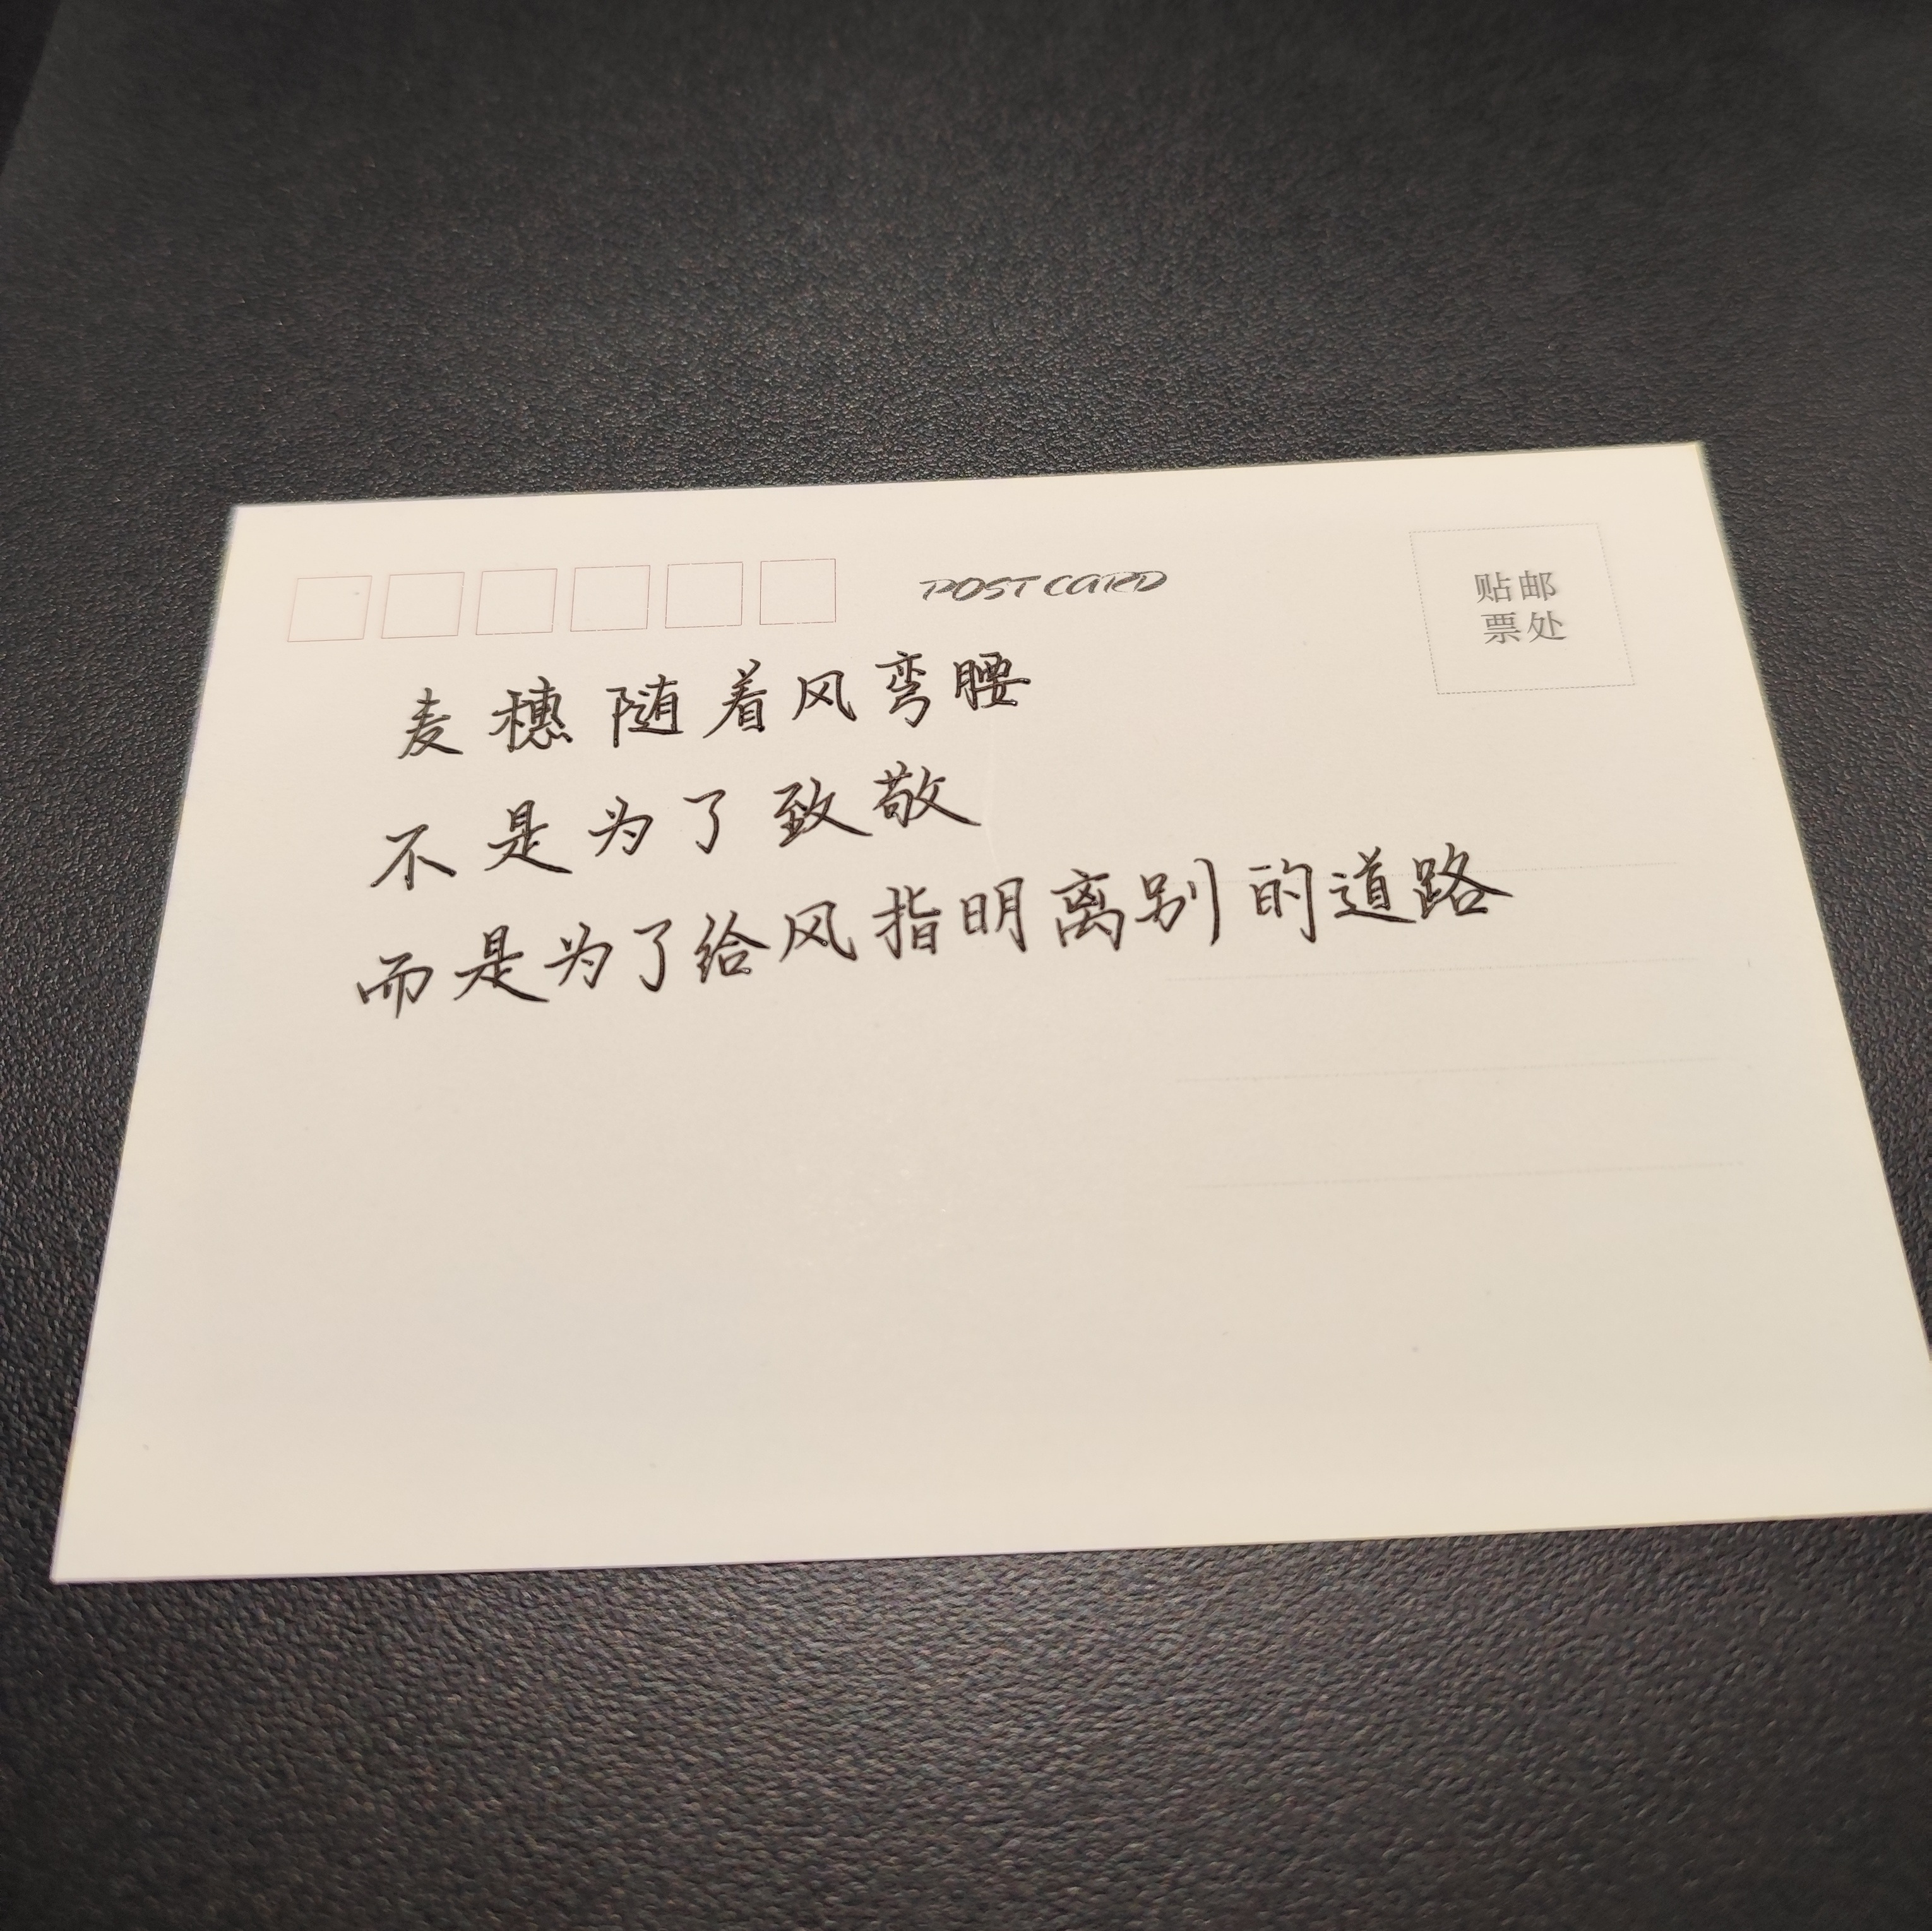 POST CARD
贴邮
票处
麦穗随着风弯腰
不是为了致敬
而是为了给风指明离别的道路